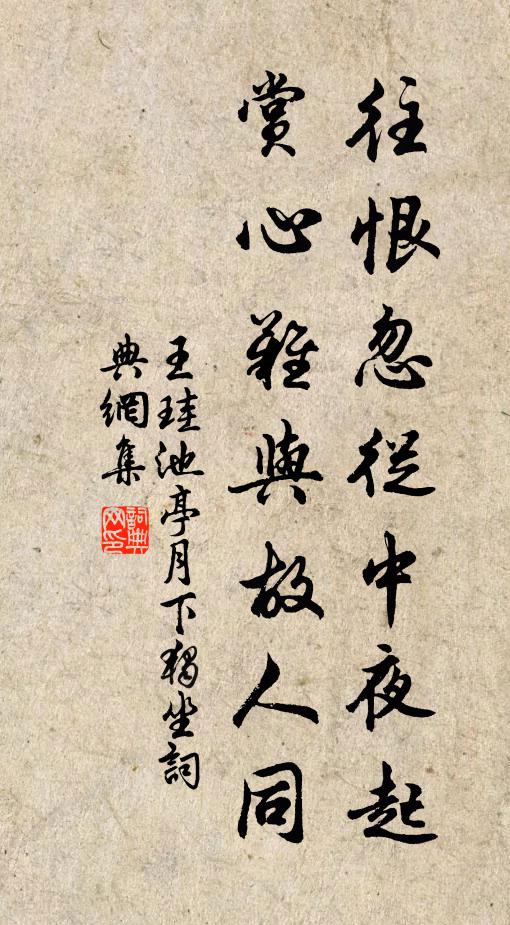 往恨忽從中夜起
賞心難與故人同
王珪池亭月下獨坐詞
典網集
詞典網印